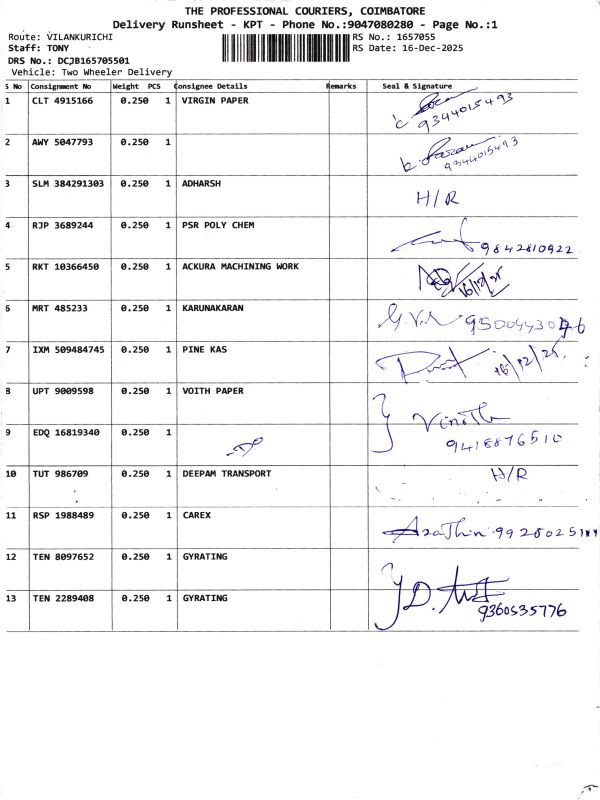 THE PROFESSIONAL COURIERS, COIMBATORE
Delivery Runsheet - KPT - Phone No.:9047080280 - Page No.:1
Route: VILANKURICHI RS No.: 1657055
Staff: TONY RS Date: 16-Dec-2025
DRS No.: DCJB165705501
Vehicle: Two Wheeler Delivery
S No Consignment No Weight PCS Consignee Details Remarks Seal & Signature
1 CLT 4915166 0.250 1 VIRGIN PAPER 9344015493
2 AWY 5047793 0.250 1 9344015493
3 SLM 384291303 0.250 1 ADHARSH H/R
4 RJP 3689244 0.250 1 PSR POLY CHEM 9842810922
5 RKT 10366450 0.250 1 ACKURA MACHINING WORK 16/12/25
6 MRT 485233 0.250 1 KARUNAKARAN
7 IXM 509484745 0.250 1 PINE KAS 16/12/25
8 UPT 9009598 0.250 1 VOITH PAPER
9 EDQ 16819340 0.250 1 9418876510
10 TUT 986709 0.250 1 DEEPAM TRANSPORT H/R
11 RSP 1988489 0.250 1 CAREX
12 TEN 8097652 0.250 1 GYRATING
13 TEN 2289408 0.250 1 GYRATING 9360535776